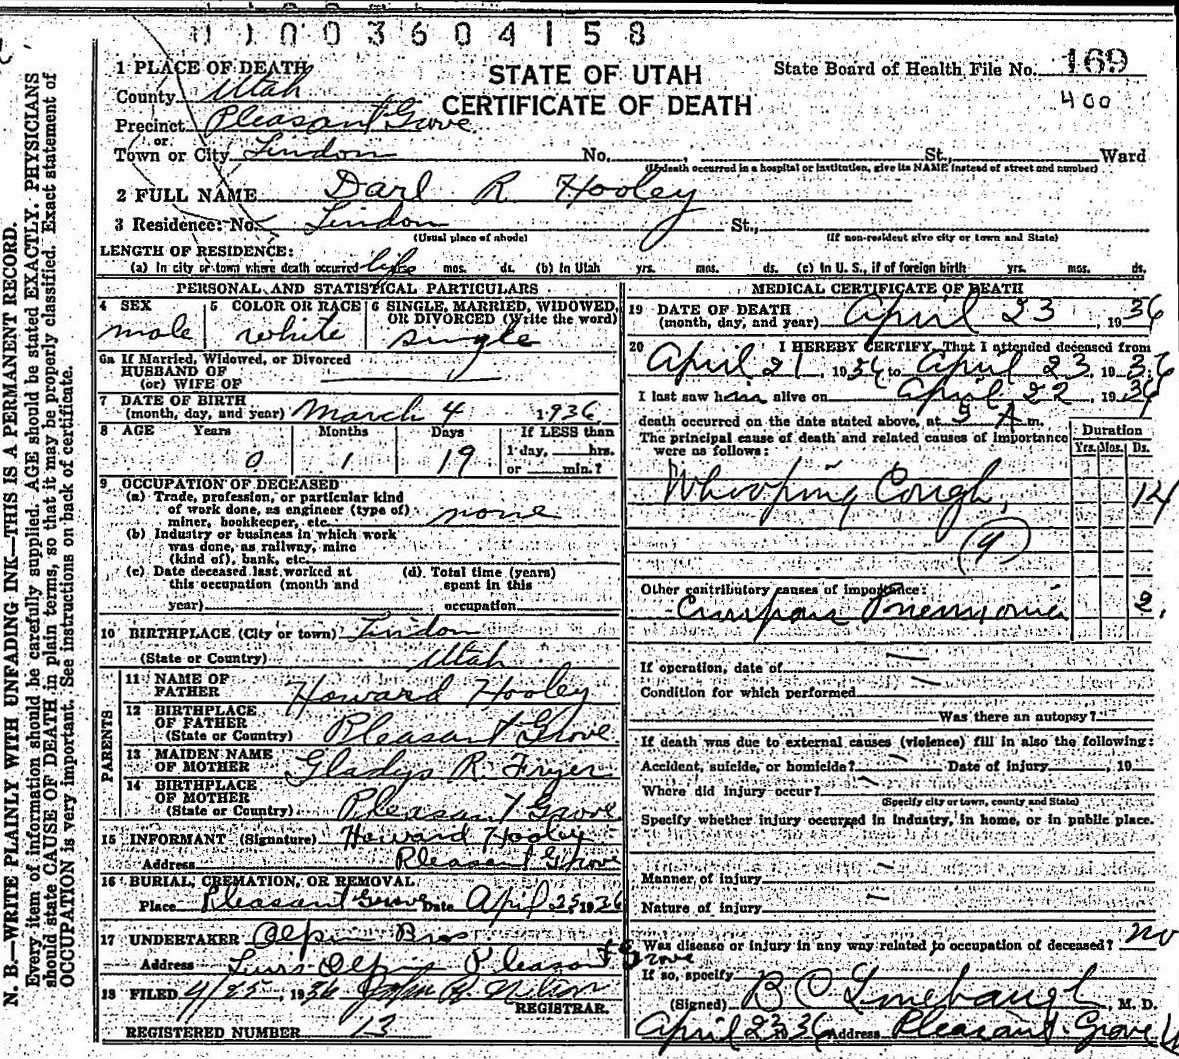 11003604158
1 PLACE OF DEATH
STATE OF UTAH
CERTIFICATE OF DEATH
State Board of Health File No. 169
400
County Utah
Precinct Pleasant Grove
or
Town or City Lindon No. , St., Ward
(If death occurred in a hospital or institution, give its NAME instead of street and number)
2 FULL NAME Darl R Hooley
3 Residence: No. Lindon St.,
(Usual place of abode) (If non-resident give city or town and State)
LENGTH OF RESIDENCE:
(a) In city or town where death occurred life mos. ds. (b) In Utah yrs. mos. ds. (c) In U. S., if of foreign birth yrs. mos. ds.
PERSONAL AND STATISTICAL PARTICULARS
4 SEX
male
5 COLOR OR RACE
white
6 SINGLE, MARRIED, WIDOWED, OR DIVORCED (Write the word)
single
6a If Married, Widowed, or Divorced
HUSBAND OF
(or) WIFE OF
7 DATE OF BIRTH
(month, day, and year) March 4 1936
8 AGE Years Months Days If LESS than
0 1 19 1 day, hrs.
or min.?
9 OCCUPATION OF DECEASED
(a) Trade, profession, or particular kind
of work done, as engineer (type of)
miner, bookkeeper, etc. none
(b) Industry or business in which work
was done, as railway, mine
(kind of), bank, etc.
(c) Date deceased last worked at
this occupation (month and
year)
(d) Total time (years)
spent in this
occupation
10 BIRTHPLACE (City or town) Lindon
(State or Country) Utah
PARENTS
11 NAME OF
FATHER Howard Hooley
12 BIRTHPLACE
OF FATHER
(State or Country) Pleasant Grove
13 MAIDEN NAME
OF MOTHER Gladys R. Fryer
14 BIRTHPLACE
OF MOTHER
(State or Country) Pleasant Grove
15 INFORMANT (Signature) Howard Hooley
Address Pleasant Grove
16 BURIAL, CREMATION, OR REMOVAL
Place Pleasant Grove Date April 25, 1936
17 UNDERTAKER Olpin Bros
Address Olpin Pleasant Grove
18 FILED 4/25, 1936 John
REGISTRAR.
REGISTERED NUMBER 13
MEDICAL CERTIFICATE OF DEATH
19 DATE OF DEATH
(month, day, and year) April 23, 1936
20 I HEREBY CERTIFY, That I attended deceased from
April 21, 1936 to April 23, 1936
I last saw him alive on April 22, 1936
death occurred on the date stated above, at 5 A m.
The principal cause of death and related causes of importance
were as follows:
Duration
Yrs. Mos. Ds.
Whooping Cough, 14
(9)
Other contributory causes of importance:
Pneumonia 2.
If operation, date of
Condition for which performed
Was there an autopsy?
If death was due to external causes (violence) fill in also the following:
Accident, suicide, or homicide? Date of injury , 19
Where did injury occur?
(Specify city or town, county and State)
Specify whether injury occurred in industry, in home, or in public place.
Manner of injury
Nature of injury
Was disease or injury in any way related to occupation of deceased? no
If so, specify
(Signed) B C Linebaugh M. D.
April 23 36 Address Pleasant Grove U
N. B.—WRITE PLAINLY WITH UNFADING INK—THIS IS A PERMANENT RECORD.
Every item of information should be carefully supplied. AGE should be stated EXACTLY. PHYSICIANS
should state CAUSE OF DEATH in plain terms, so that it may be properly classified. Exact statement of
OCCUPATION is very important. See instructions on back of certificate.